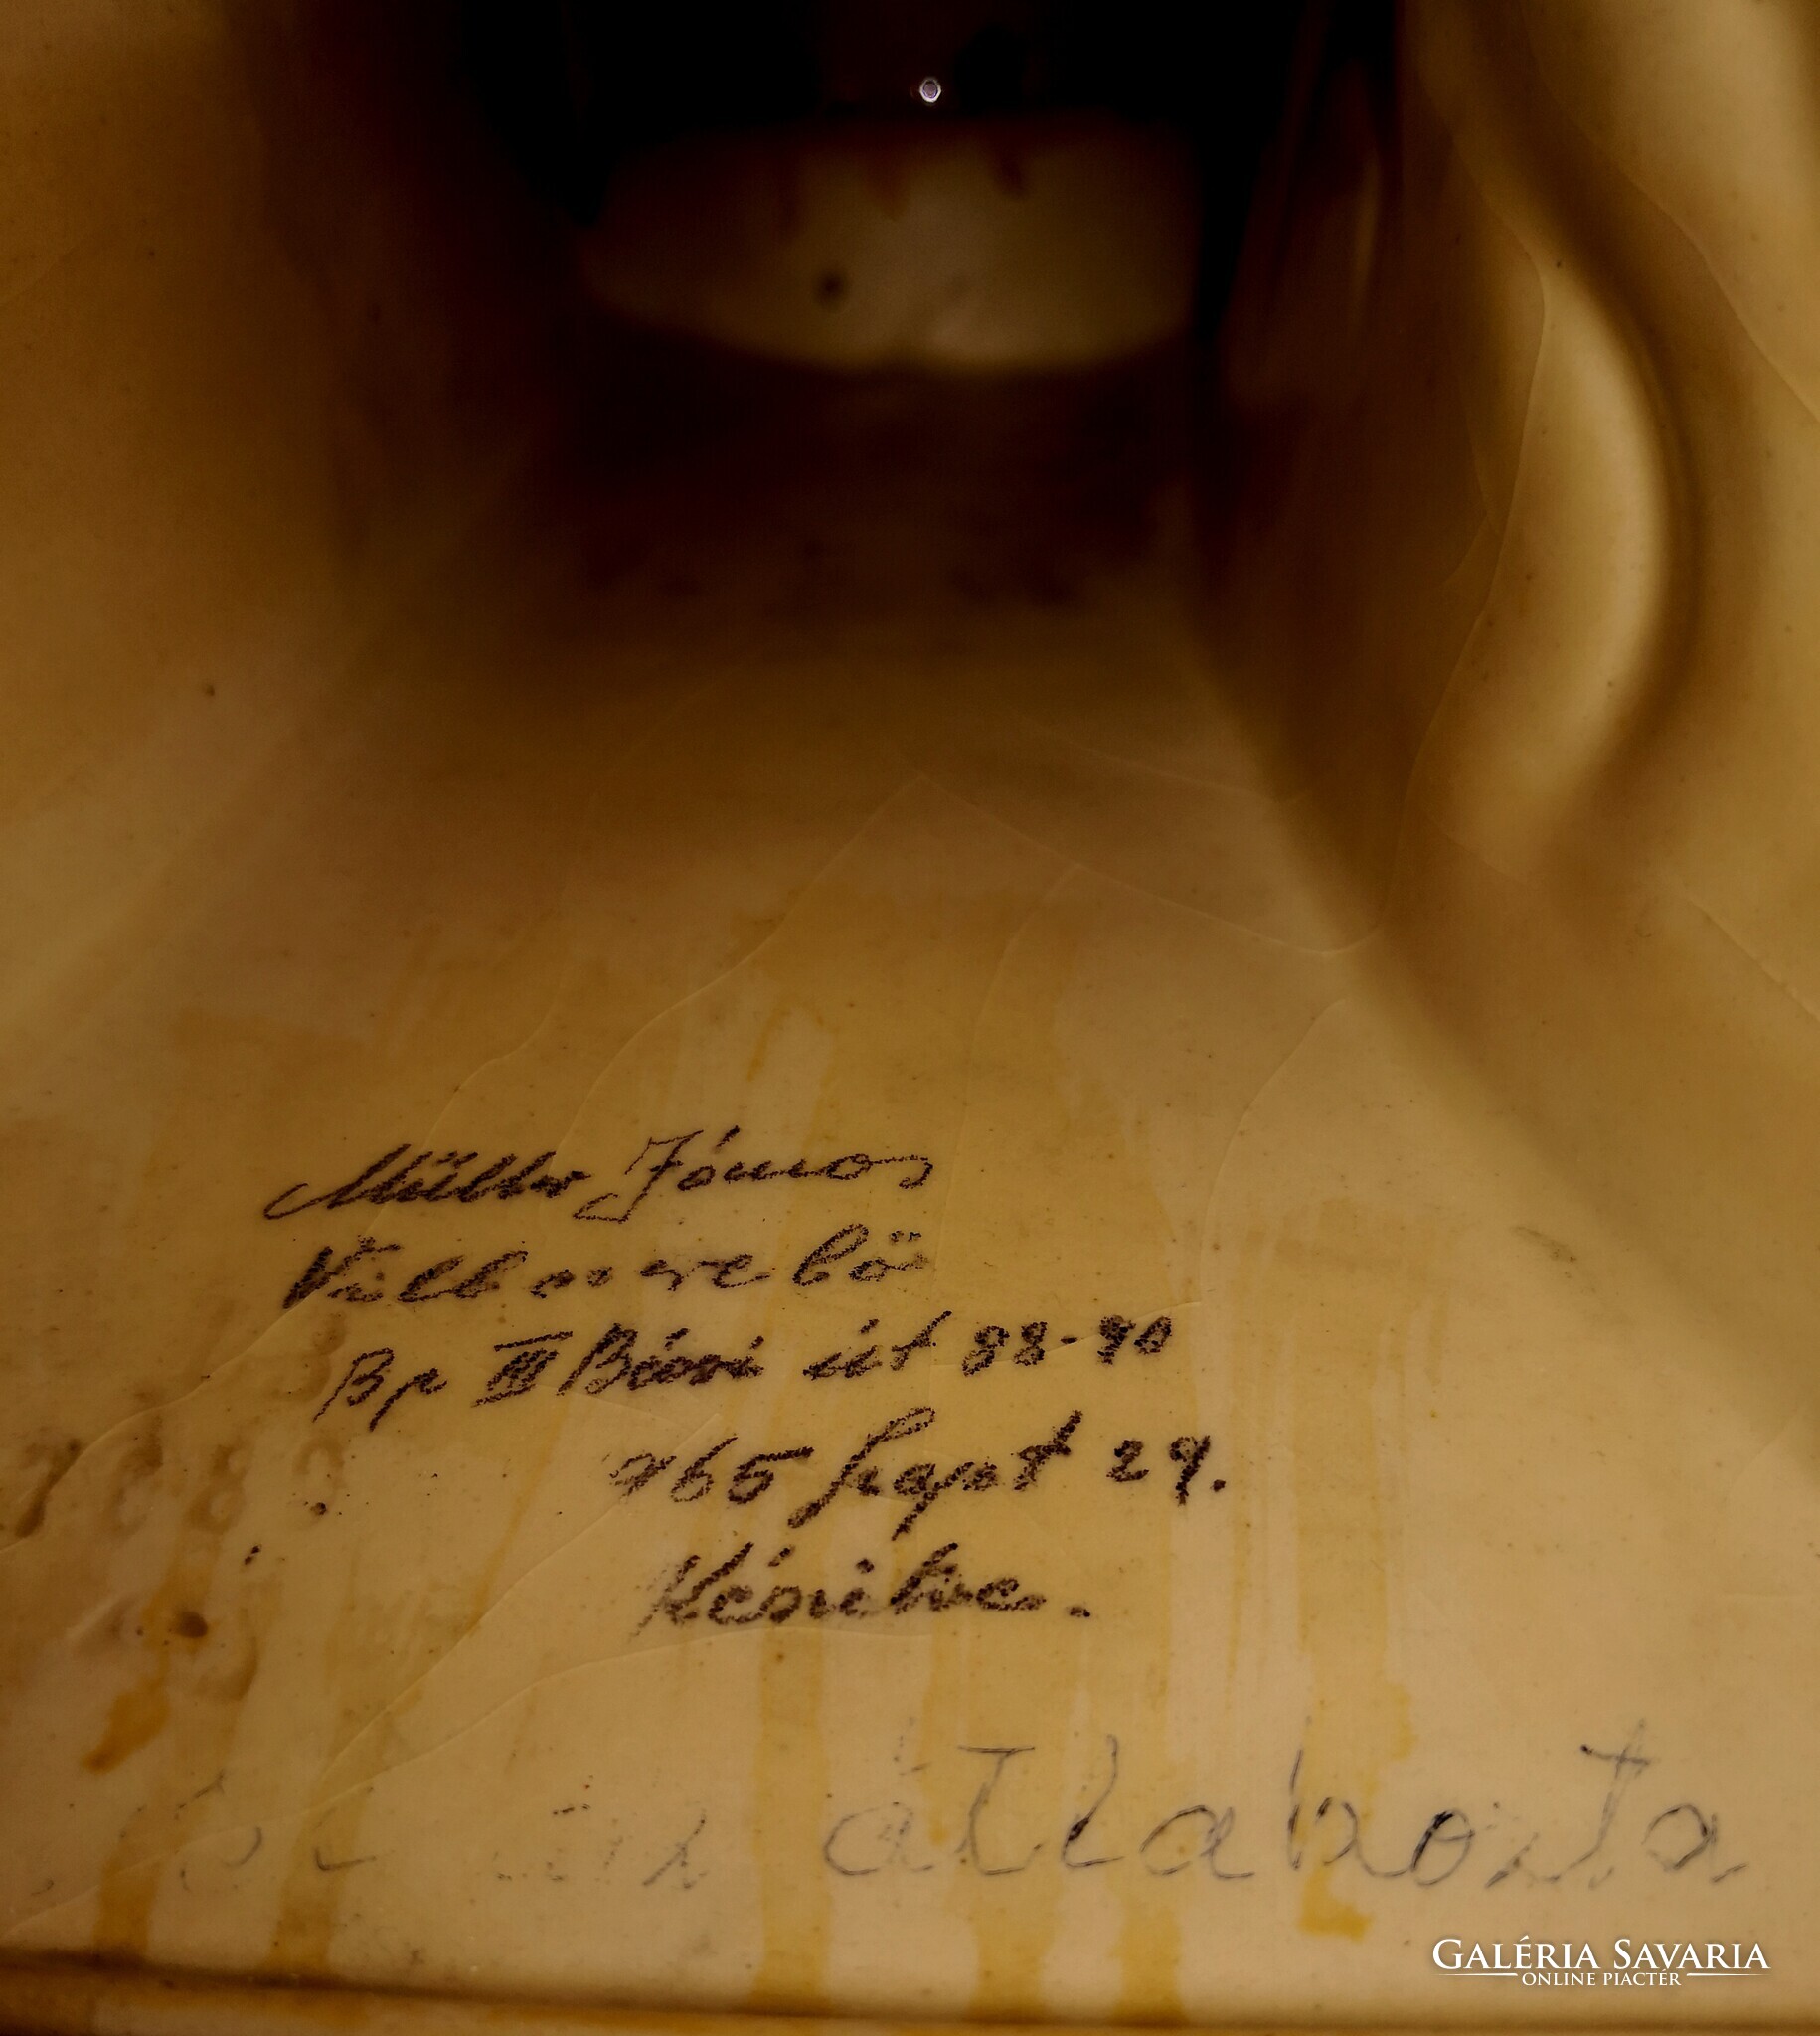 Müller János
Vill szerelő
Bp III Bécsi út 88-90
965 Szept 29.
Készitve.
7683
átlakozta
GALÉRIA SAVARIA
ONLINE PIACTÉR